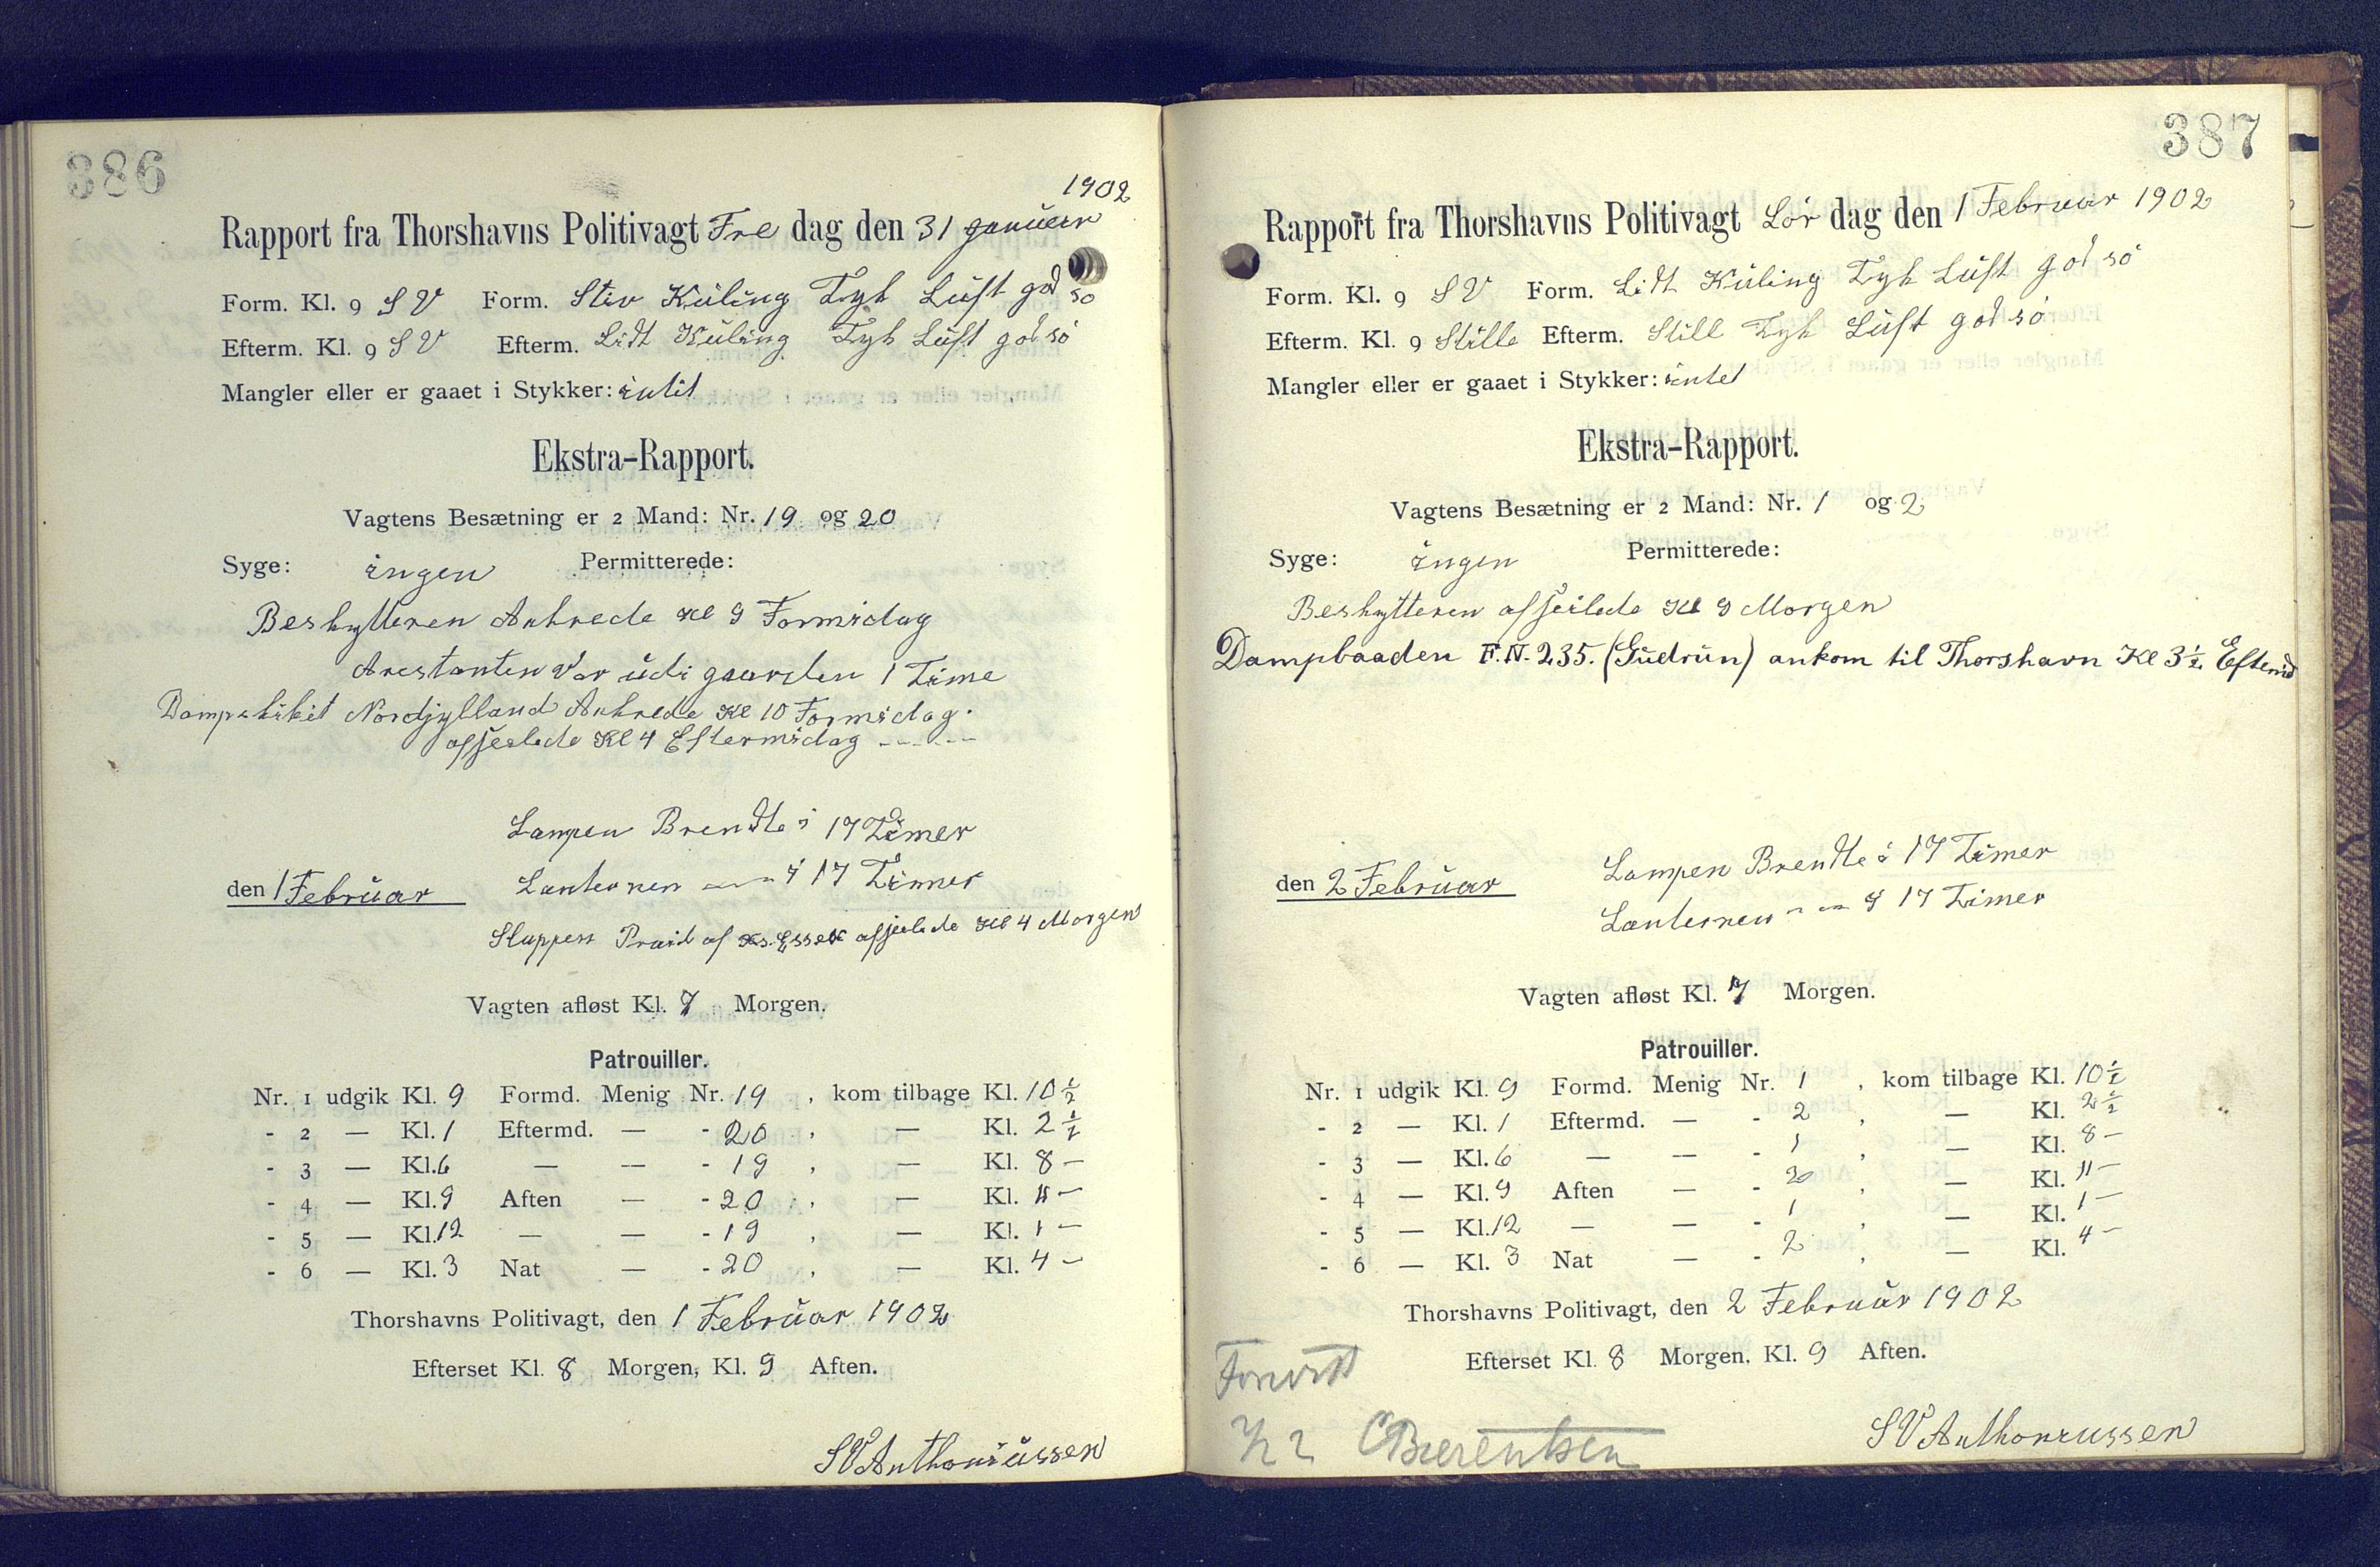 386
1902
Rapport fra Thorshavns Politivagt Fre dag den 31 Januar
Form. Kl. 9 S V Form. Stiv Kuling Tyk Luft god sö
Efterm. Kl. 9 S V Efterm. Lidt Kuling Tyk Luft god sö
Mangler eller er gaaet i Stykker: intit
Ekstra-Rapport.
Vagtens Besætning er 2 Mand: Nr. 19 og 20
Syge: ingen Permitterede:
Beskytteren Ankrede Kl 9 Formidag
Arestanten Var udi gaarden 1 Time
Dampskibit Nordjylland Ankrede Kl 10 Formidag.
afseilede Kl 4 Eftermidag
Lampen Brendte i 17 Timer
den 1 Februar Lanternen — i 17 Timer
Sluppen af afseilede Kl 4 Morgen
Vagten afløst Kl. 7 Morgen.
Patrouiller.
Nr. 1 udgik Kl. 9 Formd. Menig Nr. 19 , kom tilbage Kl. 10½
- 2 — Kl. 1 Eftermd. — - 20 , — Kl. 2½
- 3 — Kl. 6 — — - 19 , — Kl. 8 -
- 4 — Kl. 9 Aften — - 20 , — Kl. 11 -
- 5 — Kl. 12 — — - 19 , — Kl. 1 -
- 6 — Kl. 3 Nat — - 20 , — Kl. 4 -
Thorshavns Politivagt, den 1 Februar 1902
Efterset Kl. 8 Morgen, Kl. 9 Aften.
SV Anthoniussen
387
Rapport fra Thorshavns Politivagt Lör dag den 1 Februar 1902
Form. Kl. 9 S V Form. Lidt Kuling Tyk Luft god sö
Efterm. Kl. 9 Stille Efterm. Still Tyk Luft god sö
Mangler eller er gaaet i Stykker: intet
Ekstra-Rapport.
Vagtens Besætning er 2 Mand: Nr. 1 og 2
Syge: ingen Permitterede:
Beskytteren afseilede Kl 9 Morgen
Dampbaaden F.N. 235. (Gudrun) ankom til Thorshavn Kl 3½ Eftemd
Lampen Brendte i 17 Timer
den 2 Februar Lanternen — i 17 Timer
Vagten afløst Kl. 7 Morgen.
Patrouiller.
Nr. 1 udgik Kl. 9 Formd. Menig Nr. 1 , kom tilbage Kl. 10½
- 2 — Kl. 1 Eftermd. — - 2 , — Kl. 2½
- 3 — Kl. 6 — — - 1 , — Kl. 8 -
- 4 — Kl. 9 Aften — - 2 , — Kl. 11 -
- 5 — Kl. 12 — — - 1 , — Kl. 1 -
- 6 — Kl. 3 Nat — - 2 , — Kl. 4 -
Thorshavns Politivagt, den 2 Februar 1902
Efterset Kl. 8 Morgen, Kl. 9 Aften.
Forevist
Bærentsen
SV Anthoniussen